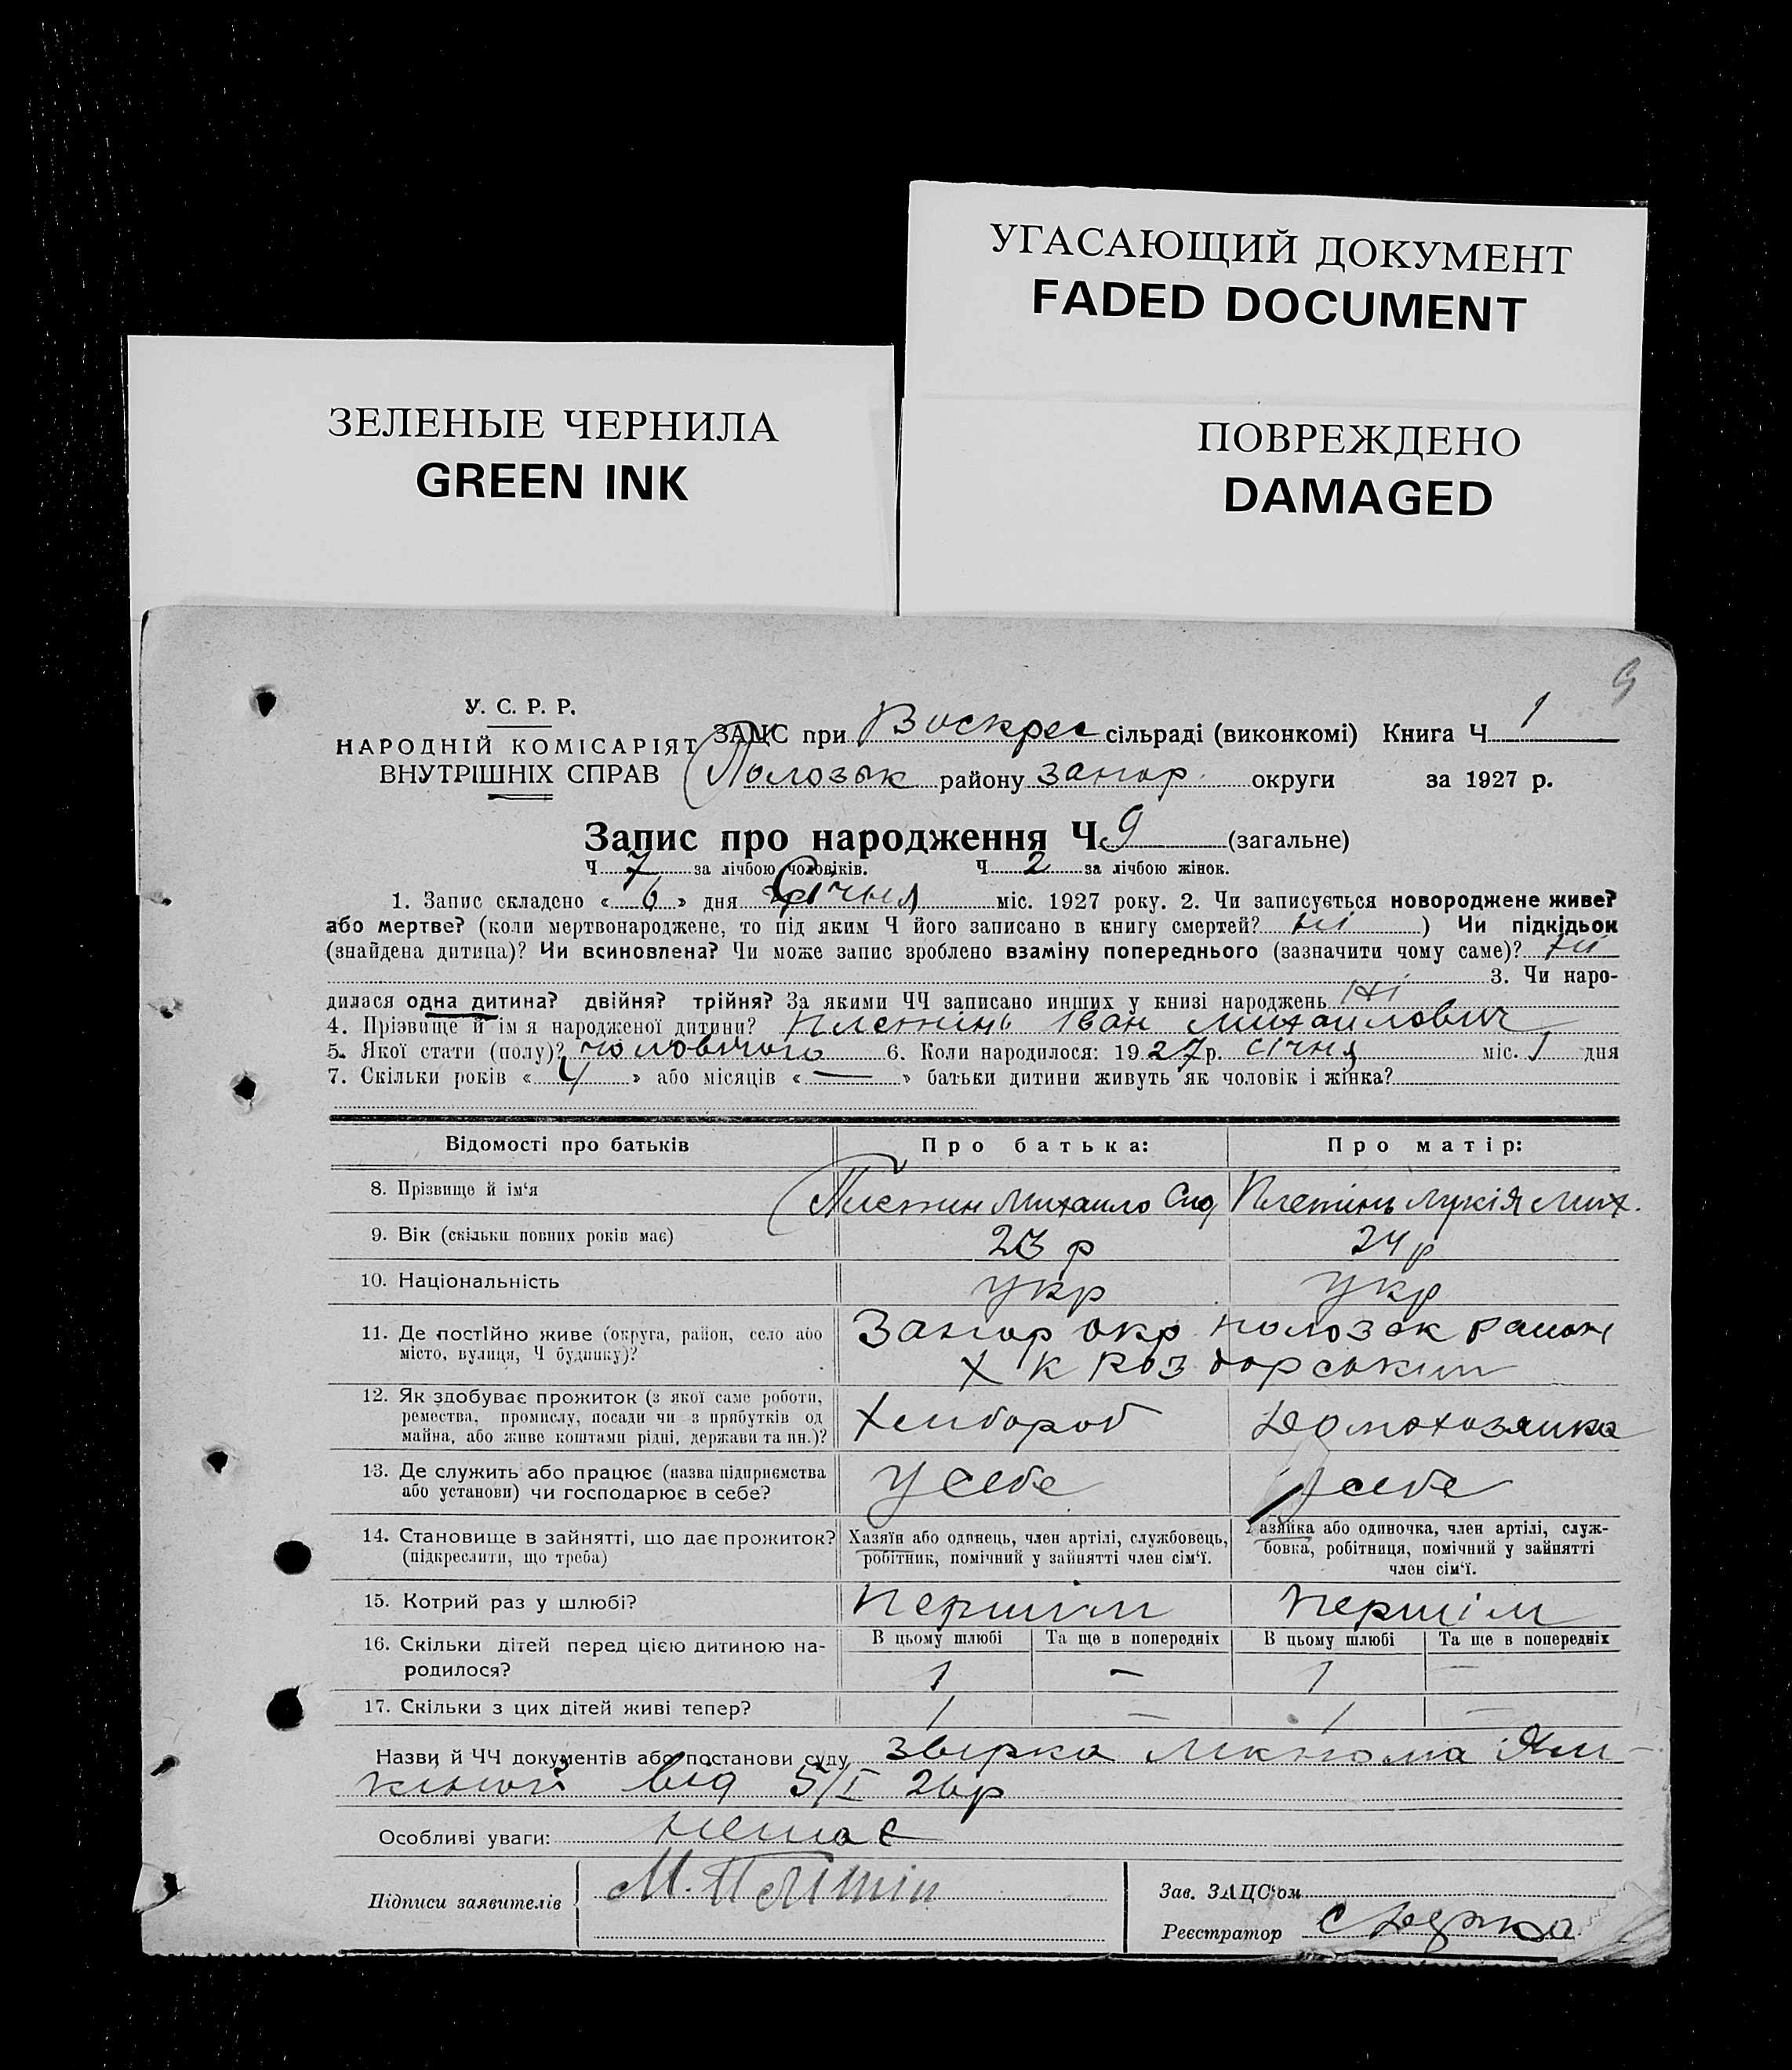 УГАСАЮЩИЙ ДОКУМЕНТ
FADED DOCUMENT
ЗЕЛЕНЫЕ ЧЕРНИЛА
GREEN INK
ПОВРЕЖДЕНО
DAMAGED
9
У. С. Р. Р.
НАРОДНІЙ КОМІСАРІЯТ
ВНУТРІШНІХ СПРАВ
ЗАЦС при Воскрес сільраді (виконкомі) Книга Ч 1
Полозьк району запор. округи за 1927 р.
Запис про народження Ч 9 (загальне)
Ч 7 за лічбою чоловіків. Ч 2 за лічбою жінок.
1. Запис складено « 6 » дня Січня міс. 1927 року. 2. Чи записується новороджене живе?
або мертве? (коли мертвонароджене, то під яким Ч його записано в книгу смертей? ні ) Чи підкідьок
(знайдена дитина)? Чи всиновлена? Чи може запис зроблено взаміну попереднього (зазначити чому саме)? ні
3. Чи наро-
дилася одна дитина? двійня? трійня? За якими ЧЧ записано инших у книзі народжень ні
4. Прізвище й ім я народженої дитини? Плетінь Іван Михайлович
5. Якої стати (полу)? чоловічого 6. Коли народилося: 1927 р. січня міс. 1 дня
7. Скільки років « 4 » або місяців « — » батьки дитини живуть як чоловік і жінка?
Відомості про батьків Про батька: Про матір:
8. Прізвище й ім‘я Плетин Михаило Сид Плетінь Лукія Мих.
9. Вік (скільки повних років має) 23 р 24 р
10. Національність укр укр
11. Де постійно живе (округа, район, село або Запор окр полозьк раион
місто, вулиця, Ч будинку)? х к Роздорськім
12. Як здобуває прожиток (з якої саме роботи,
ремества, промислу, посади чи з прибутків од Хлибороб Домохозяика
майна, або живе коштами рідні, держави та ин.)?
13. Де служить або працює (назва підприємства
або установи) чи господарює в себе? У себе У себе
14. Становище в зайнятті, що дає прожиток? Хазяїн або одинець, член артілі, службовець, Хазяйка або одиночка, член артілі, служ-
(підкреслити, що треба) робітник, помічний у зайнятті член сім‘ї. бовка, робітниця, помічний у зайнятті
член сім‘ї.
15. Котрий раз у шлюбі? Першім Першім
16. Скільки дітей перед цією дитиною на- В цьому шлюбі Та ще в попередніх В цьому шлюбі Та ще в попередніх
родилося? 1 — 1 —
17. Скільки з цих дітей живі тепер? 1 — 1 —
Назви й ЧЧ документів або постанови суду
від 5/I 26р
Особливі уваги: немає
Підписи заявителів М. Плітін
Зав. ЗАЦС‘ом
Реєстратор